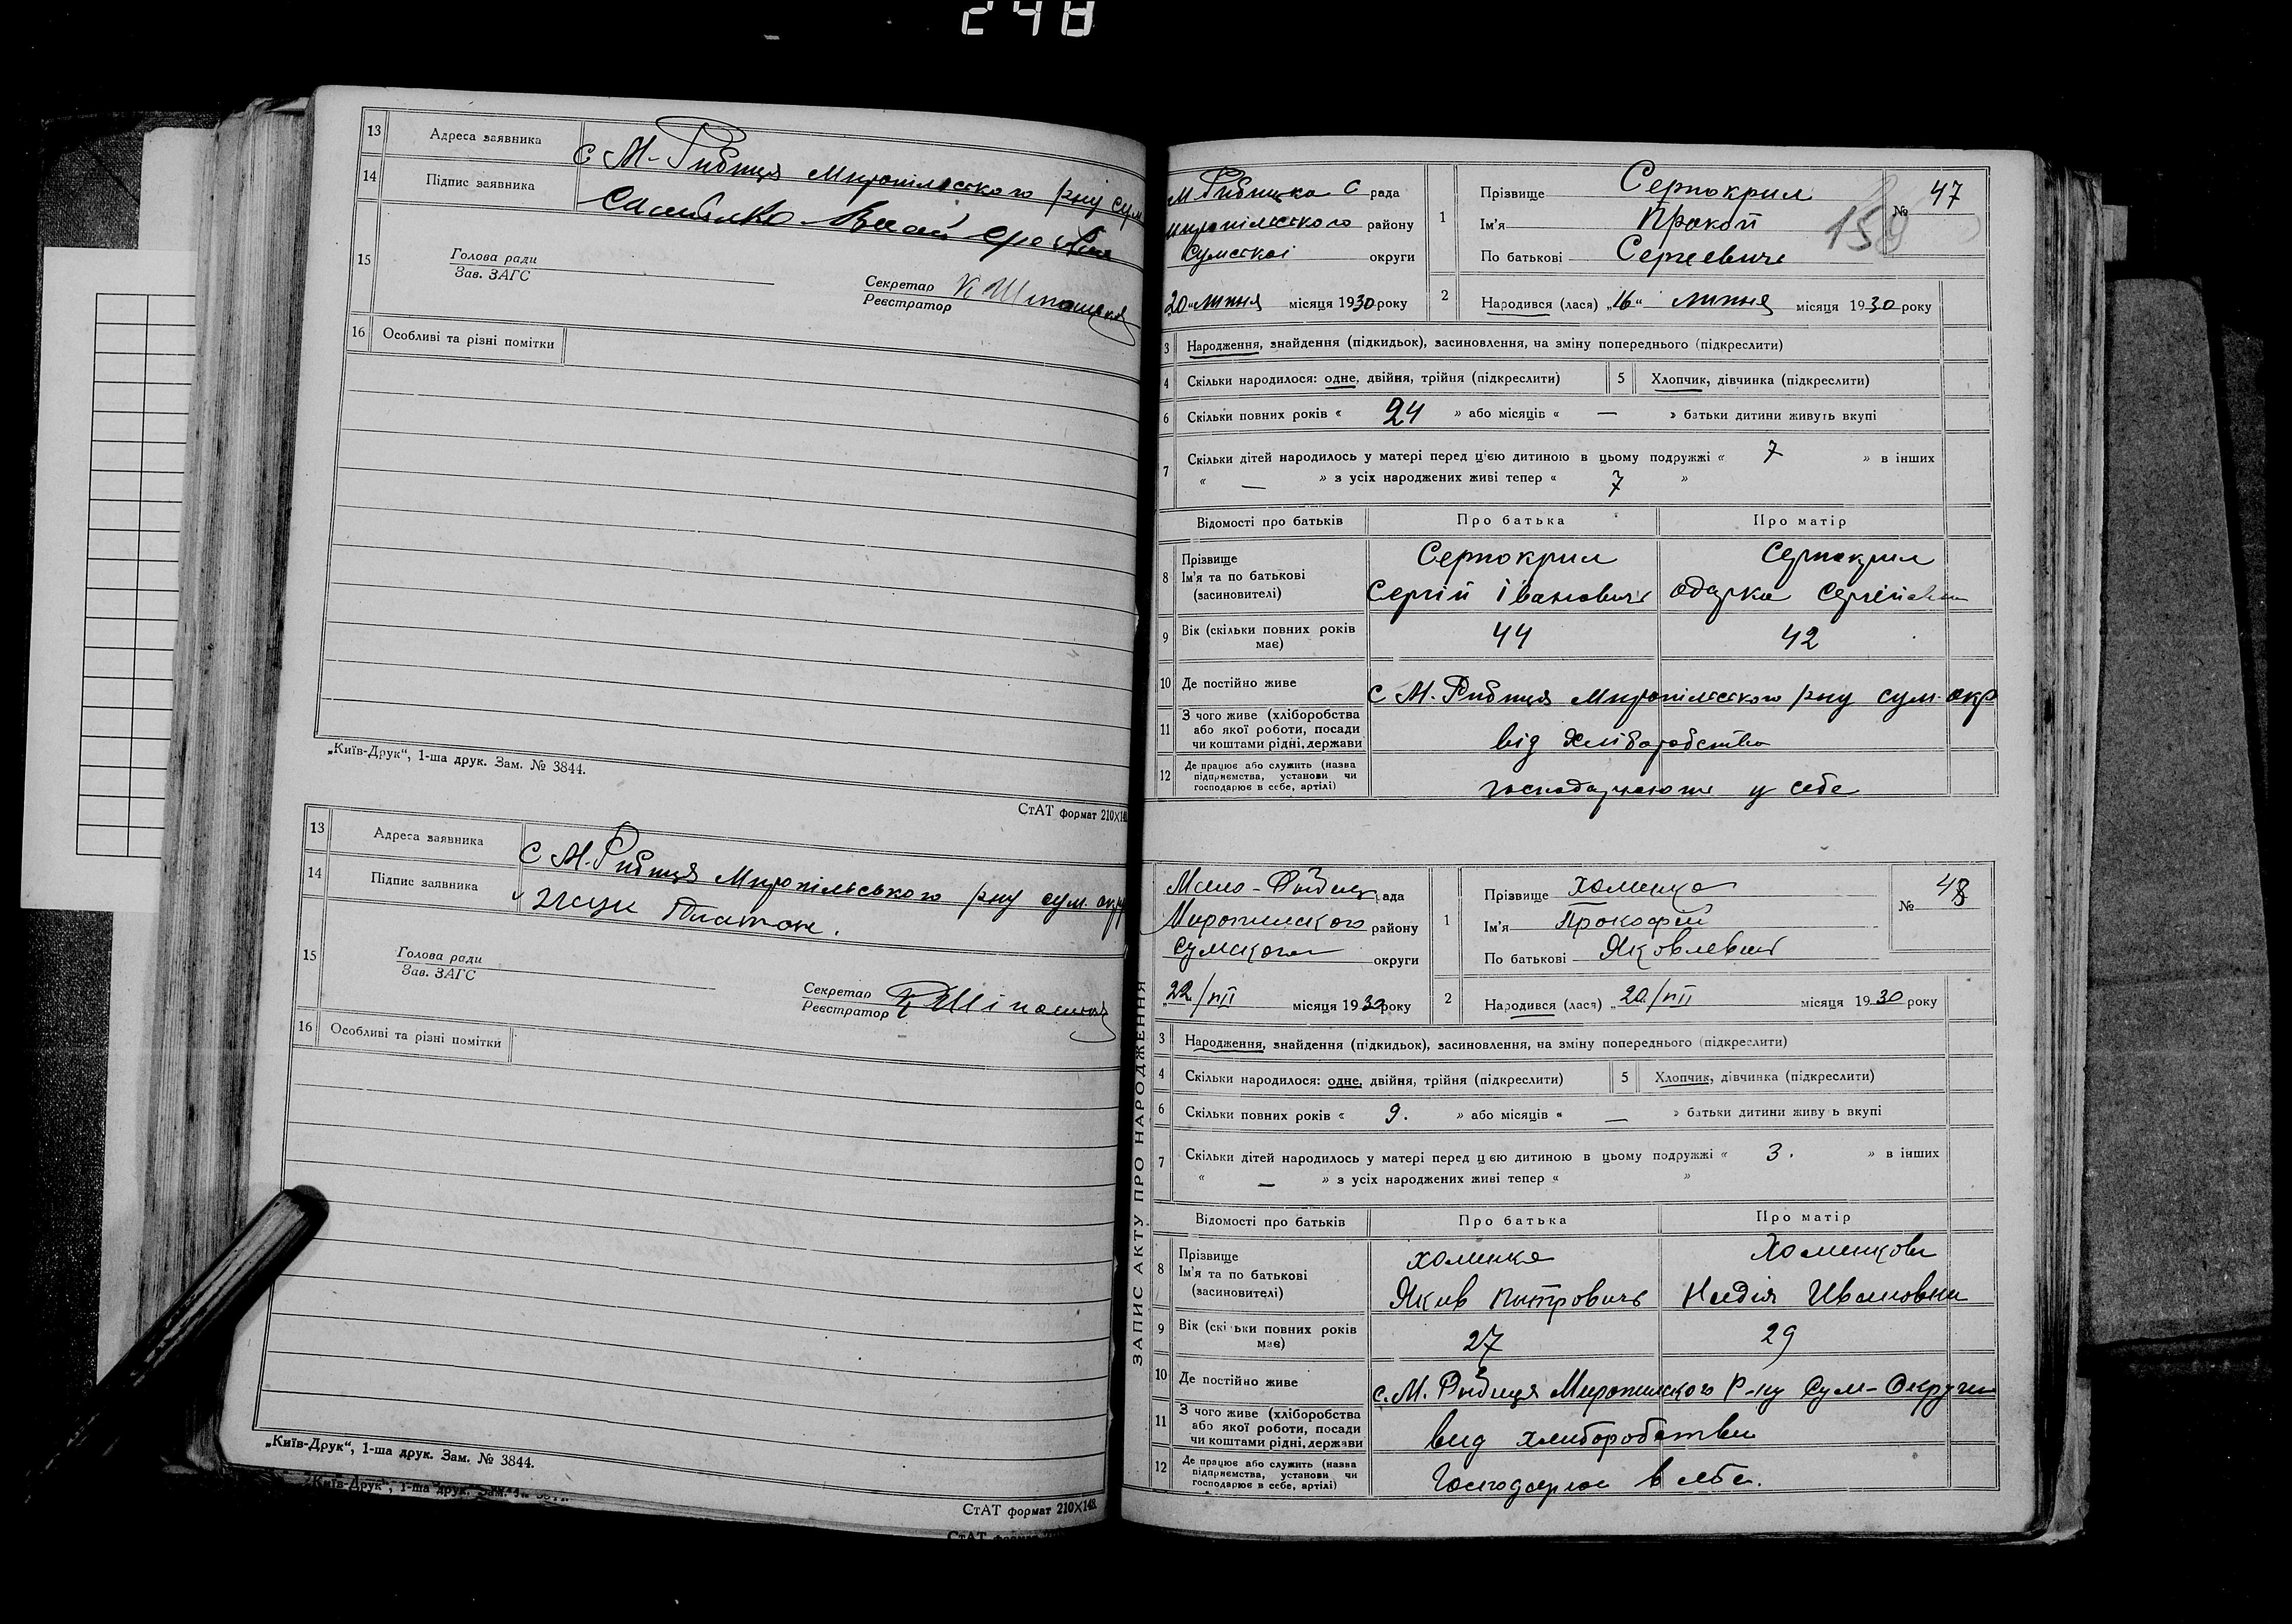 248
13 Адреса заявника с М-Рибиця Миропілського р-ну сум
14 Підпис заявника
15 Голова ради
Зав. ЗАГС
Секретар
Реєстратор
16 Особливі та різні помітки
„Київ-Друк“, 1-ша друк. Зам. № 3844.
СтАТ формат 210×148.
13 Адреса заявника с М-Рибиця Миропільського р-ну сум. окр
14 Підпис заявника Жук Платон.
15 Голова ради
Зав. ЗАГС
Секретар
Реєстратор
16 Особливі та різні помітки
„Київ-Друк“, 1-ша друк. Зам. № 3844.
СтАТ формат 210×148.
М Рибицька С рада
миропілського району
Сумської округи
„20“ липня місяця 1930 року
1 Прізвище Серпокрил
Ім'я Прокоп
По батькові Сергеевич
№ 47
159
2 Народився (лася) „16“ липня місяця 1930 року
3 Народження, знайдення (підкидьок), засиновлення, на зміну попереднього (підкреслити)
4 Скільки народилося: одне, двійня, трійня (підкреслити) 5 Хлопчик, дівчинка (підкреслити)
6 Скільки повних років « 24 » або місяців « — » батьки дитини живуть вкупі
7 Скільки дітей народилось у матері перед цією дитиною в цьому подружжі « 7 » в інших
« — » з усіх народжених живі тепер « 7 »
Відомості про батьків Про батька Про матір
8 Прізвище Серпокрил Серпокрил
Ім'я та по батькові
(засиновителі) Сергій Іванович Одарка Сергіївна
9 Вік (скільки повних років має) 44 42
10 Де постійно живе с М. Рибиця Миропілського р-ну сум. окр
11 З чого живе (хліборобства
або якої роботи, посади
чи коштами рідні, держави від хліборобства
12 Де працює або служить (назва
підприємства, установи чи
господарює в себе, артілі) господарюють у себе
ЗАПИС АКТУ ПРО НАРОДЖЕННЯ
Мало-Рыбиц рада
Миропилского району
Сумского округи
22/VII місяця 1930 року
1 Прізвище Хоменко
Ім'я Прокофій
По батькові Яковлевич
№ 48
2 Народився (лася) „20/VII місяця 1930 року
3 Народження, знайдення (підкидьок), засиновлення, на зміну попереднього (підкреслити)
4 Скільки народилося: одне, двійня, трійня (підкреслити) 5 Хлопчик, дівчинка (підкреслити)
6 Скільки повних років « 9. » або місяців « — » батьки дитини живу ь вкупі
7 Скільки дітей народилось у матері перед цією дитиною в цьому подружжі « 3. » в інших
« — » з усіх народжених живі тепер « »
Відомості про батьків Про батька Про матір
8 Прізвище Хоменко Хоменкова
Ім'я та по батькові
(засиновителі) Яков Питрович Надія Ивановна
9 Вік (скі ьки повних років має) 27 29
10 Де постійно живе с. М. Рыбиця Миропилского Р-ну Сум-Округи
11 З чого живе (хліборобства
або якої роботи, посади
чи коштами рідні, держави вид хлиборобства
12 Де працює або служить (назва
підприємства, установи чи
господарює в себе, артілі) Господарюе в себе.